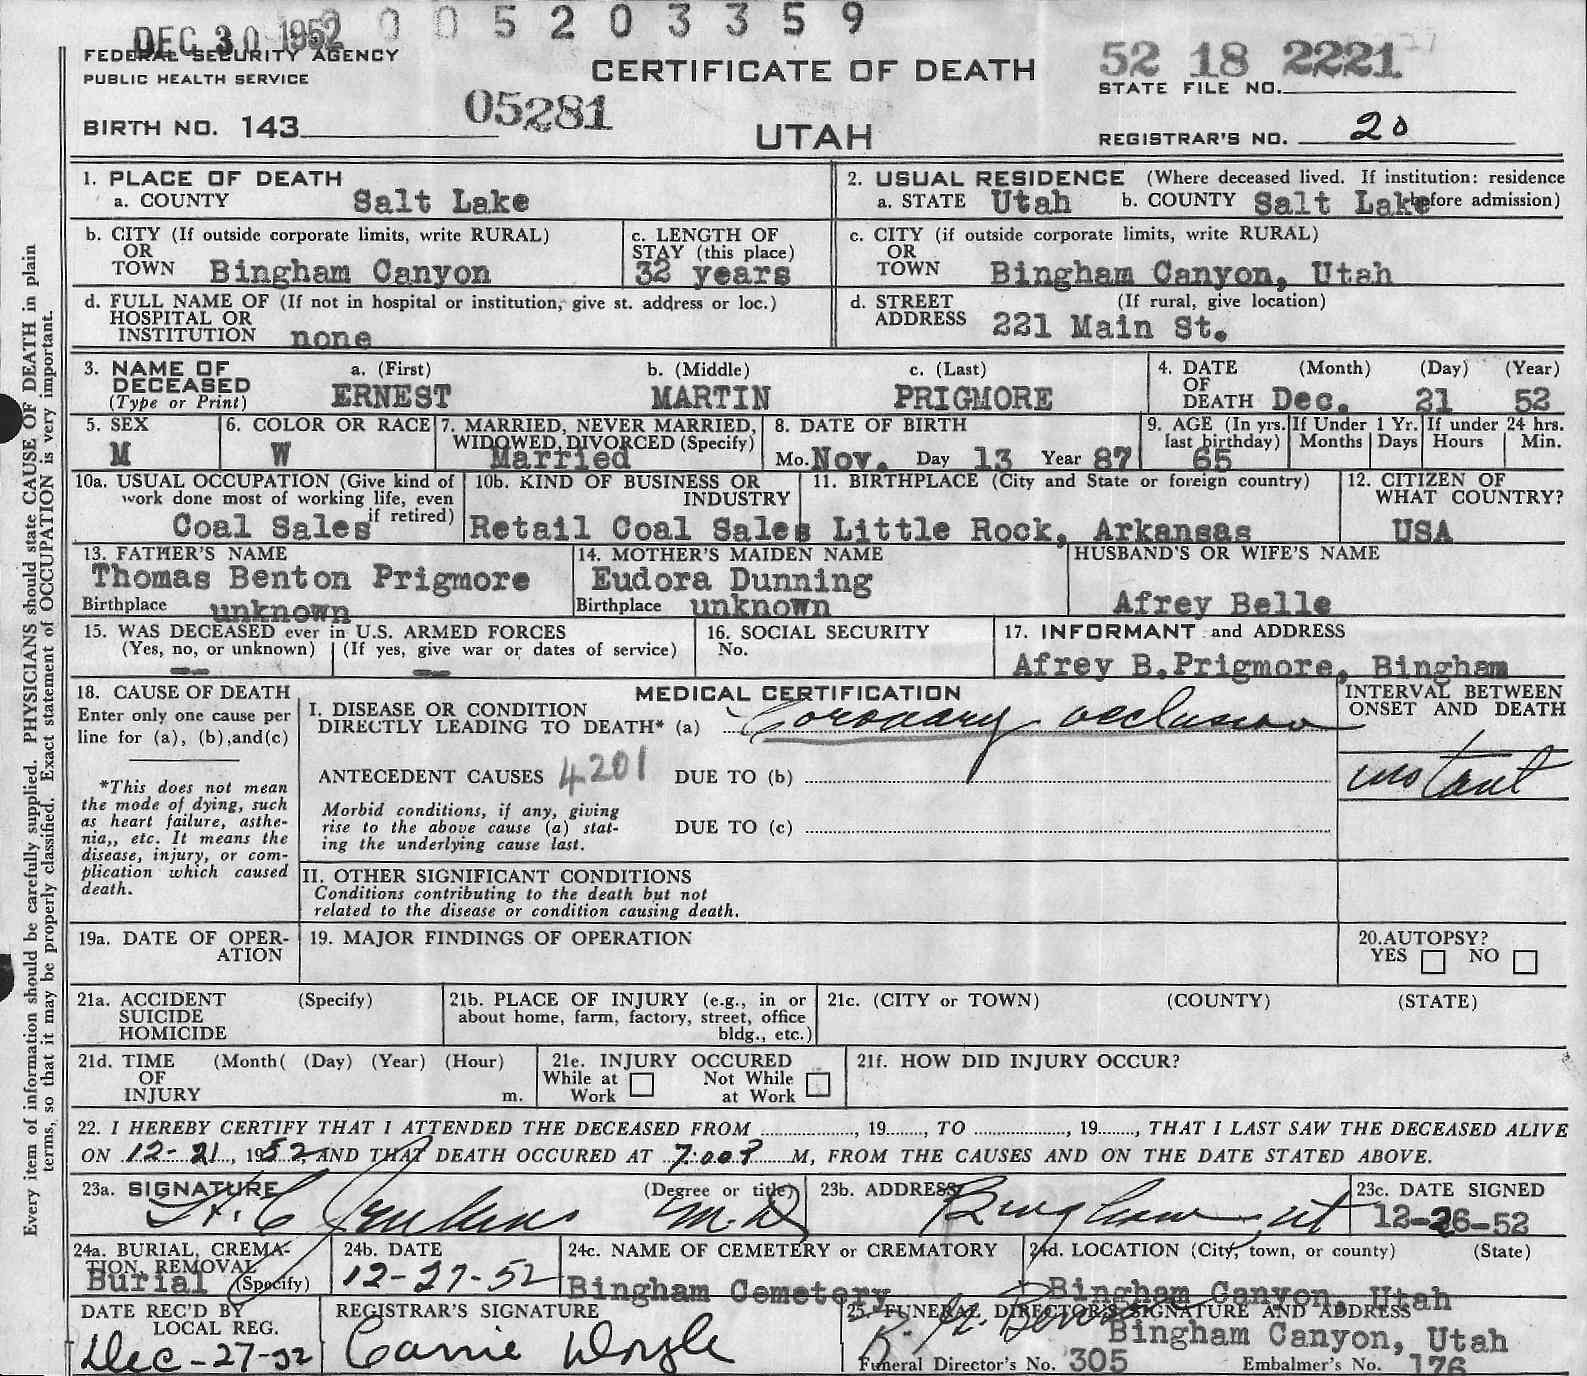 DEC 30 1952 0 0 5 2 0 3 3 5 9
FEDERAL SECURITY AGENCY
PUBLIC HEALTH SERVICE
CERTIFICATE OF DEATH
52 18 2221
STATE FILE NO.
BIRTH NO. 143
05281
UTAH
REGISTRAR'S NO. 20
1. PLACE OF DEATH
a. COUNTY Salt Lake
2. USUAL RESIDENCE (Where deceased lived. If institution: residence
a. STATE Utah b. COUNTY Salt Lake before admission)
b. CITY (If outside corporate limits, write RURAL)
OR
TOWN Bingham Canyon
c. LENGTH OF
STAY (this place)
32 years
c. CITY (if outside corporate limits, write RURAL)
OR
TOWN Bingham Canyon, Utah
d. FULL NAME OF (If not in hospital or institution, give st. address or loc.)
HOSPITAL OR
INSTITUTION none
d. STREET (If rural, give location)
ADDRESS 221 Main St.
3. NAME OF a. (First) b. (Middle) c. (Last)
DECEASED
(Type or Print) ERNEST MARTIN PRIGMORE
4. DATE (Month) (Day) (Year)
OF
DEATH Dec. 21 52
5. SEX
M
6. COLOR OR RACE
W
7. MARRIED, NEVER MARRIED,
WIDOWED, DIVORCED (Specify)
Married
8. DATE OF BIRTH
Mo. Nov. Day 13 Year 87
9. AGE (In yrs.
last birthday)
65
If Under 1 Yr.
Months Days
If under 24 hrs.
Hours Min.
10a. USUAL OCCUPATION (Give kind of
work done most of working life, even
if retired)
Coal Sales
10b. KIND OF BUSINESS OR
INDUSTRY
Retail Coal Sales
11. BIRTHPLACE (City and State or foreign country)
Little Rock, Arkansas
12. CITIZEN OF
WHAT COUNTRY?
USA
13. FATHER'S NAME
Thomas Benton Prigmore
Birthplace unknown
14. MOTHER'S MAIDEN NAME
Eudora Dunning
Birthplace unknown
HUSBAND'S OR WIFE'S NAME
Afrey Belle
15. WAS DECEASED ever in U.S. ARMED FORCES
(Yes, no, or unknown) (If yes, give war or dates of service)
-- --
16. SOCIAL SECURITY
No.
17. INFORMANT and ADDRESS
Afrey B.Prigmore, Bingham
18. CAUSE OF DEATH
Enter only one cause per
line for (a), (b),and(c)
*This does not mean
the mode of dying, such
as heart failure, asthe-
nia,, etc. It means the
disease, injury, or com-
plication which caused
death.
MEDICAL CERTIFICATION
I. DISEASE OR CONDITION
DIRECTLY LEADING TO DEATH* (a) Coronary occlusion
ANTECEDENT CAUSES 4201 DUE TO (b)
Morbid conditions, if any, giving
rise to the above cause (a) stat-
ing the underlying cause last.
DUE TO (c)
II. OTHER SIGNIFICANT CONDITIONS
Conditions contributing to the death but not
related to the disease or condition causing death.
INTERVAL BETWEEN
ONSET AND DEATH
instant
19a. DATE OF OPER-
ATION
19. MAJOR FINDINGS OF OPERATION
20.AUTOPSY?
YES NO
21a. ACCIDENT (Specify)
SUICIDE
HOMICIDE
21b. PLACE OF INJURY (e.g., in or
about home, farm, factory, street, office
bldg., etc.)
21c. (CITY or TOWN) (COUNTY) (STATE)
21d. TIME (Month( (Day) (Year) (Hour)
OF
INJURY m.
21e. INJURY OCCURED
While at Not While
Work at Work
21f. HOW DID INJURY OCCUR?
22. I HEREBY CERTIFY THAT I ATTENDED THE DECEASED FROM ............, 19......, TO ............, 19......, THAT I LAST SAW THE DECEASED ALIVE
ON 12-21, 1952, AND THAT DEATH OCCURED AT 7:00 P M, FROM THE CAUSES AND ON THE DATE STATED ABOVE.
23a. SIGNATURE (Degree or title)
Jenkins M.D
23b. ADDRESS
Bingham, ut
23c. DATE SIGNED
12-26-52
24a. BURIAL, CREMA-
TION, REMOVAL
Burial (Specify)
24b. DATE
12-27-52
24c. NAME OF CEMETERY or CREMATORY
Bingham Cemetery
24d. LOCATION (City, town, or county) (State)
Bingham Canyon, Utah
DATE REC'D BY
LOCAL REG.
Dec-27-52
REGISTRAR'S SIGNATURE
Carrie
25. FUNERAL DIRECTOR'S SIGNATURE AND ADDRESS
Bingham Canyon, Utah
Funeral Director's No. 305 Embalmer's No. 176
Every item of information should be carefully supplied. PHYSICIANS should state CAUSE OF DEATH in plain
terms, so that it may be properly classified. Exact statement of OCCUPATION is very important.